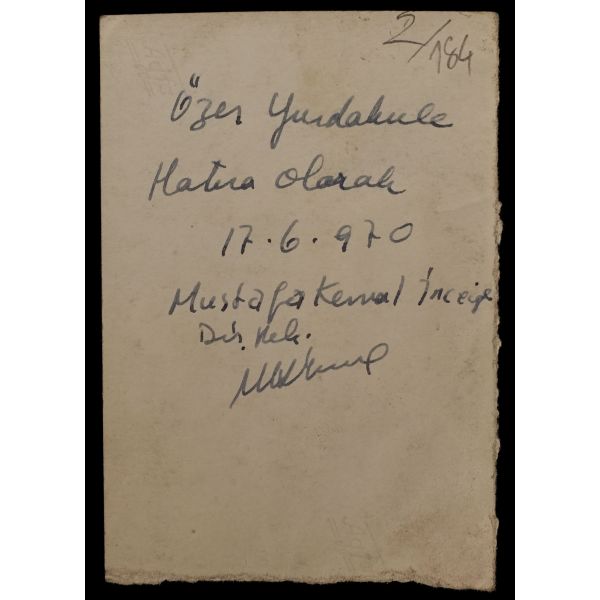 2/184
Özer Yurdakule
Hatıra Olarak
17.6.970
Mustafa Kemal
Diş. Hek.